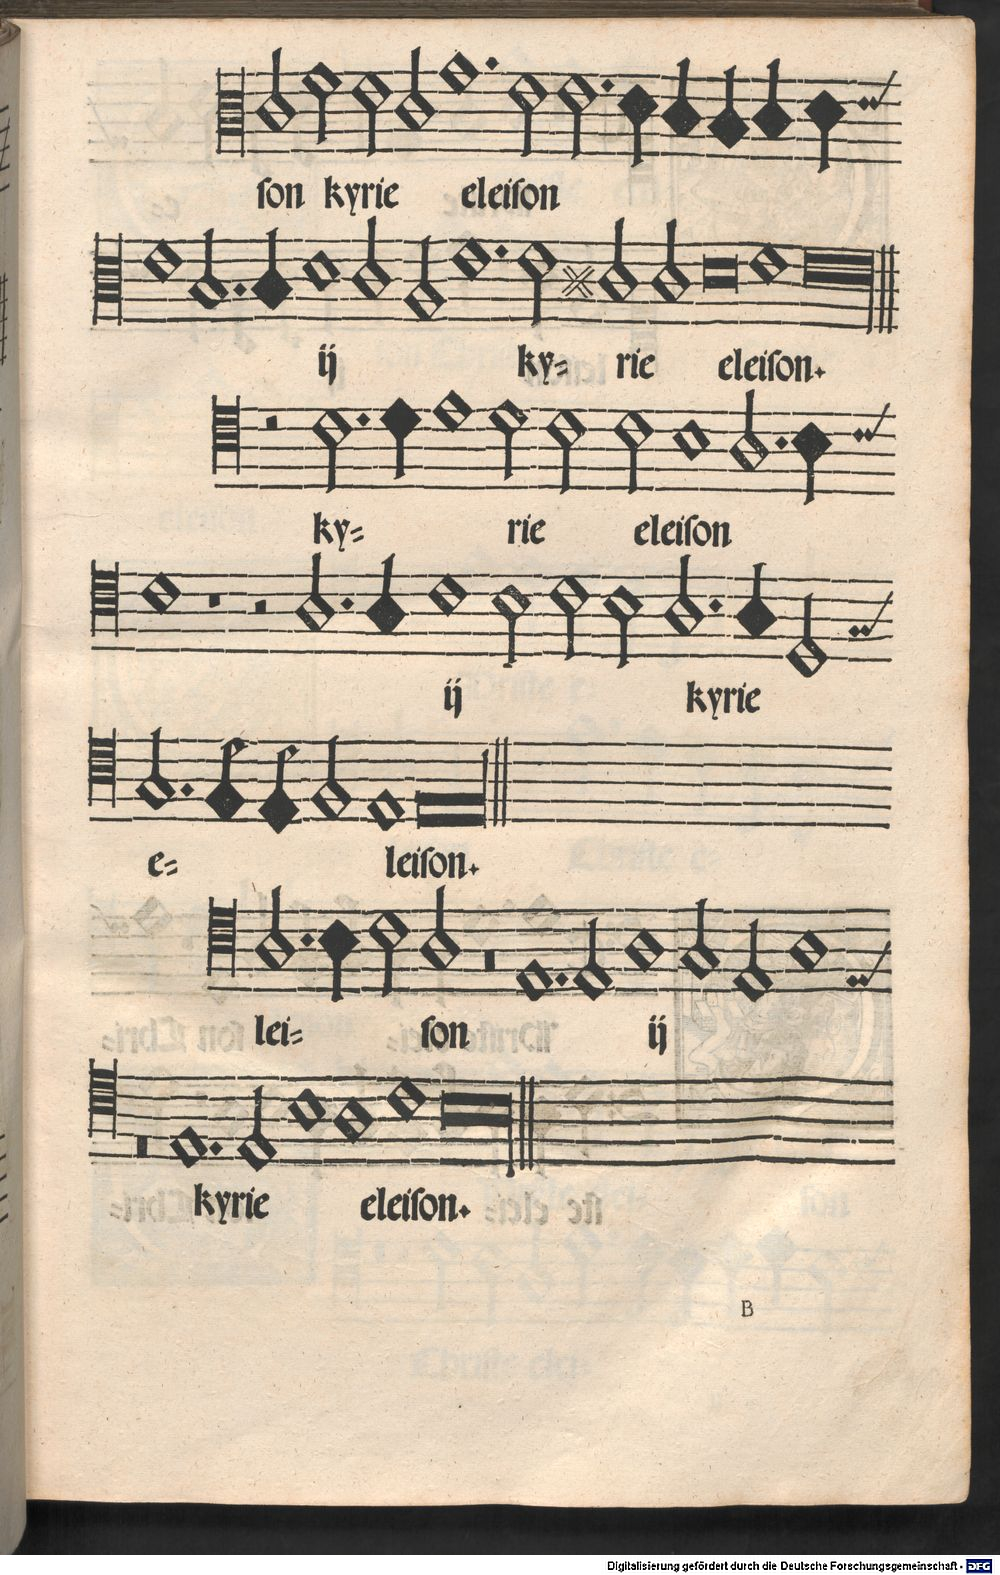 ſon kyrie eleiſon
ij ky= rie eleiſon.
ky= rie eleiſon
ij kyrie
e= leiſon.
lei= ſon ij
kyrie eleiſon.
B
Digitalisierung gefördert durch die Deutsche Forschungsgemeinschaft - DFG